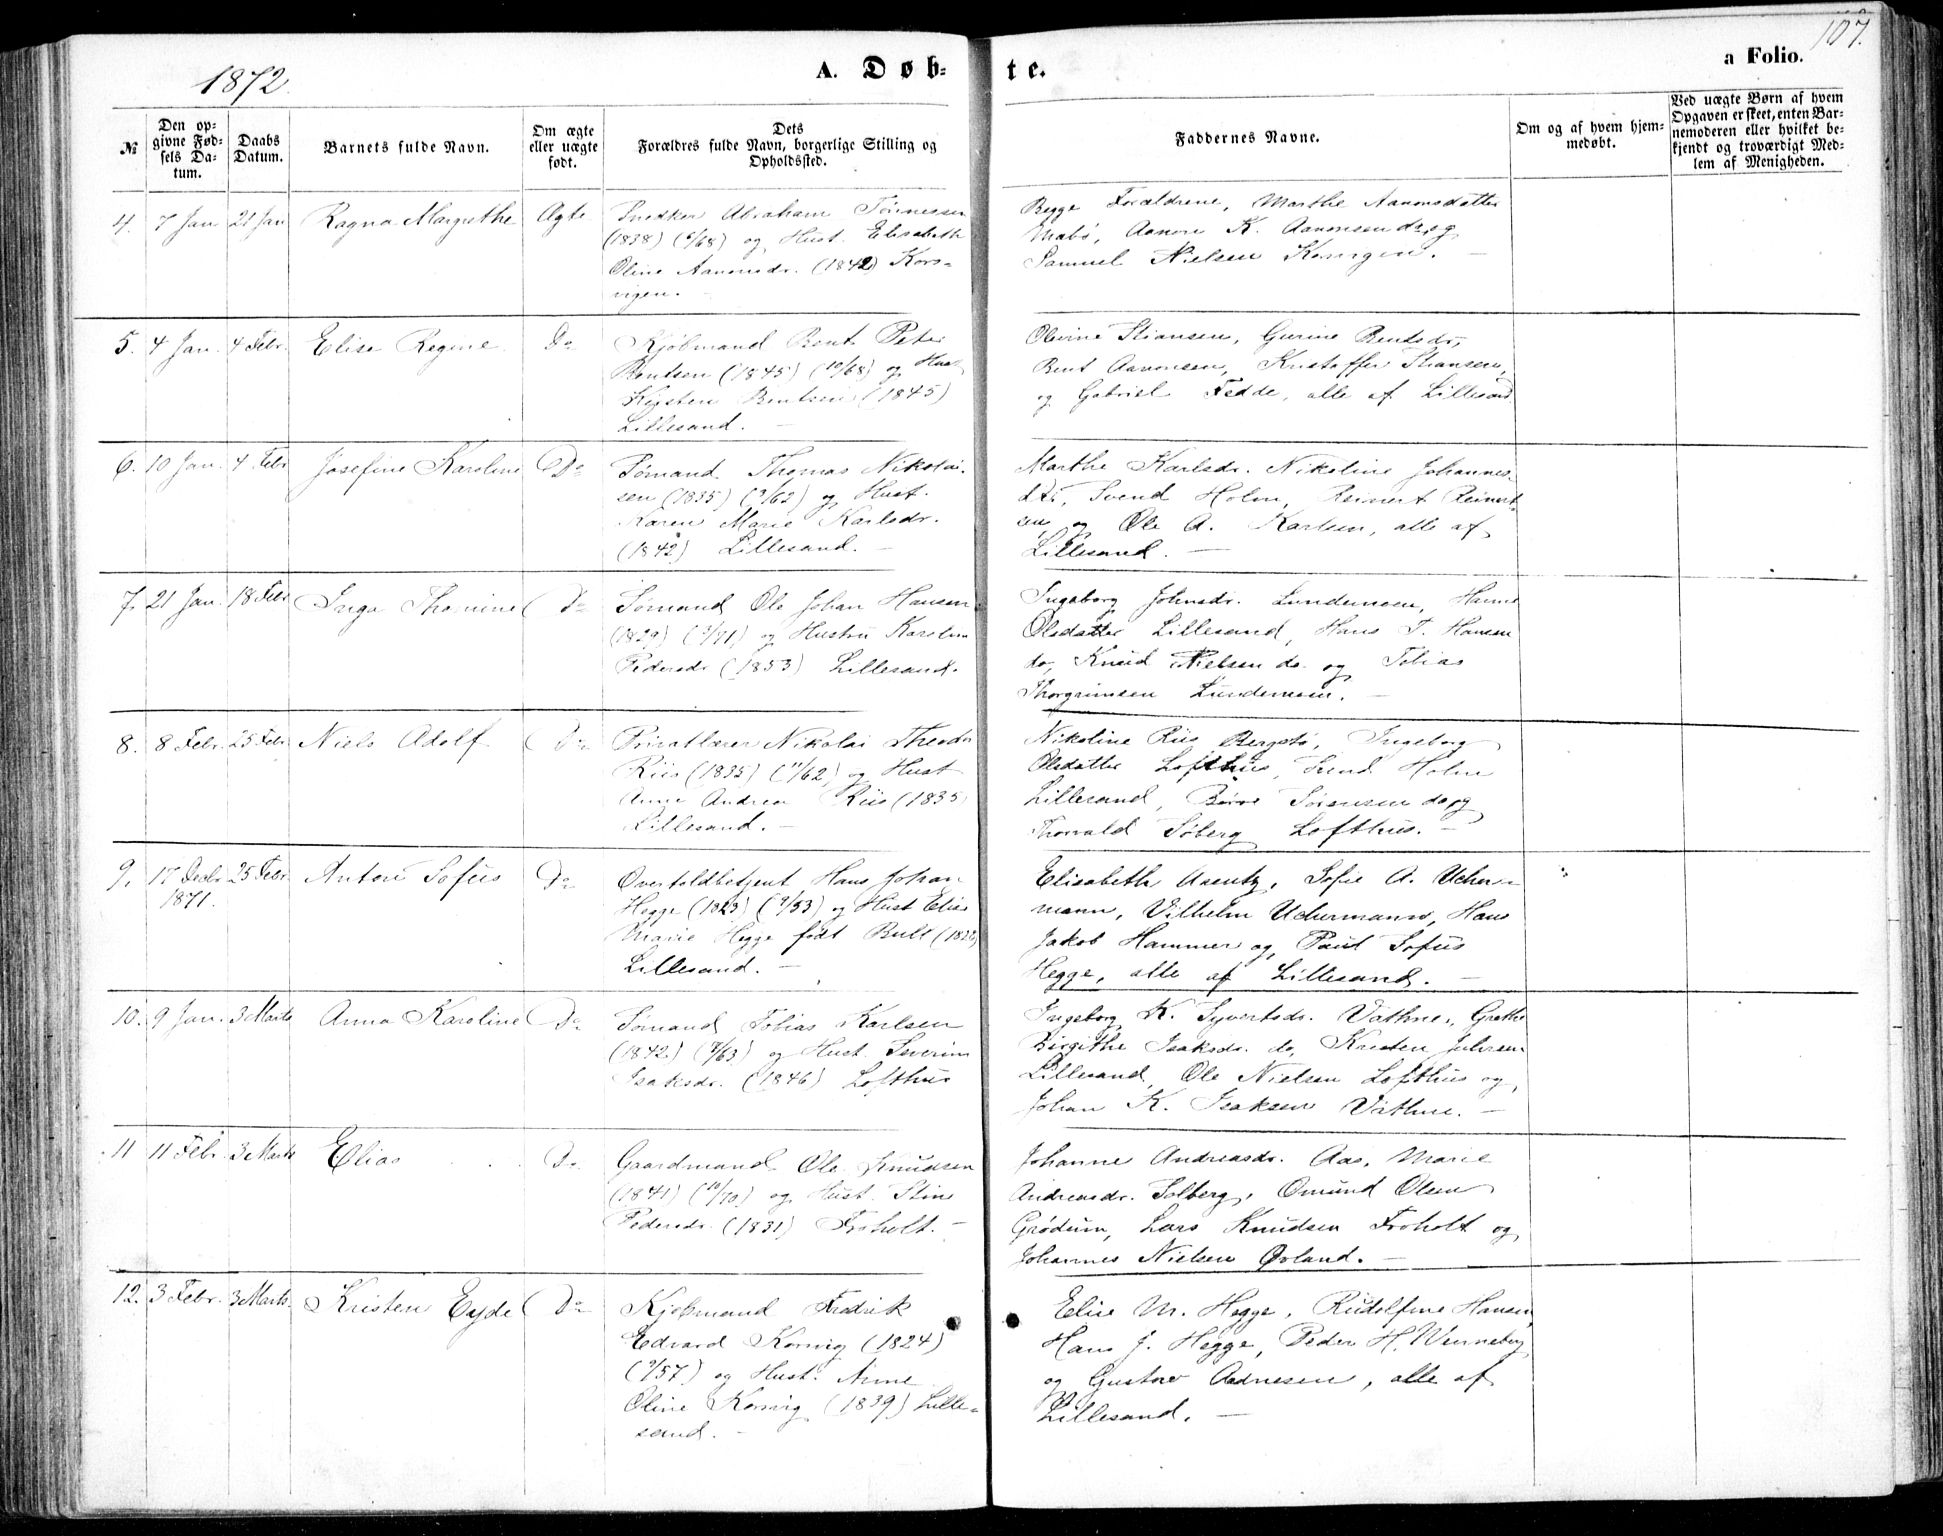 1872
A. Døb-
te.
a Folio.
107.
№
Den op-
givne Fød-
sels Da-
tum.
Daabs
Datum.
Barnets fulde Navn.
Om ægte
eller uægte
født.
Dets
Forældres fulde Navn, borgerlige Stilling og
Opholdssted.
Faddernes Navne.
Om og af hvem hjem-
medøbt.
Ved uægte Børn af hvem
Opgaven er skeet, enten Bar-
nemoderen eller hvilket be-
kjendt og troværdigt Med-
lem af Menigheden.
4. 7 Jan 21 Jan Ragna Margrethe Ægte
Snedker Abraham Tønnessen
(1838) (6/68) og Hust. Elisabeth
Oline Aanonsdr. (1842) Kors-
vigen. -
Begge Forældrene, Marthe Aanonsdatter
Mabø, Aanon K. Aanonsen do, og
Samuel Nielsen . -
5. 4 Jan. 4 Febr. Elise Regine Do
Kjøbmand Bent Peter
Bentsen (1845) (10/68) og Hust
Kirsten Bentsen (1845)
Lillesand. -
Olevine Stiansen, Gurine Bentsdr,
Bent Aanonsen, Kristoffer Stiansen,
og Gabriel Fedde, alle af Lillesand
6. 10 Jan. 4 Febr Josefine Karoline Do
Sømand Thomas Nikolai-
sen (1835) (9/62) og Hust.
Karen Marie Karlsdr.
(1842) Lillesand. -
Marthe Karlsdr. Nikoline Johannes-
dtr, Svend Holm, Reinert Reinert-
sen, og Ole A. Karlsen, alle af
Lillesand. -
7. 21 Jan. 18 Febr Inga Thomine Do
Sømand Ole Johan Hansen
(1829) (/71) og Hustru Karoline
Pedersdr (1853) Lillesand.
Ingeborg Johnsdr. Lundemoen, Hanne
Olsdatter Lillesand, Hans T. Hansen
do, Knud Nielsen do. og Tobias
Thorgrimsen Lundemoen. -
8. 8 Febr. 25 Febr. Niels Adolf Do
Privatlærer Nikolai Theodor
Riis (1835) (11/62) og Hust
Anne Andrea Riis (1835
Lillesand. -
Nikoline Riis Bergstø, Ingeborg
Olsdatter Lofthus, Svend Holm
Lillesand, Børre Sørensen do og
Thorvald Søberg Lofthus. -
9. 17 Decbr 25 Febr. Anton Sofus Do
1871.
Overtoldbetjent Hans Johan
Hegge (1823) (9/53) og Hust Elise
Marie Hegge født Bull (182
Lillesand. -
Elisabeth , Sofie A. Ucher-
mann, Vilhelm Uchermann, Hans
Jakob Hammer og Paul Sofus
Hegge, alle af Lillesand. -
10. 9 Jan. 3 Marts Anna Karoline Do
Sømand Tobias Karlsen
(1842) (/63) og Hust. Severine
Isaksdr. (1846) Lofthus
Ingeborg K. Syvertsdr. Vathne, Grethe
Birgithe Isaksdr. do, Kristen Juhlsen
Lillesand, Ole Nielsen Lofthus og
Johan K. Isaksen Vathne. -
11 11 Febr. 3 Marts Elias Do
Gaardmand Ole Knudsen
(1841) (10/70) og Hust. Stine
Pedersdr. (1831) Froholt. -
Johanne Andreasdr. Aas, Marie
Andreasdr. Solberg, Omund Olsen
Grødum, Lars Knudsen Froholt og
Johannes Nielsen Øvland. -
12. 3 Febr. 3 Marts. Kristen Eyde Do
Kjøbmand Fredrik
Edvard Korsvig (1824)
(9/57) og Hust. Anne
Oline Korsvig (1839) Lille-
sand. -
Elise M. Hegge, Rudolfine Hansen,
Hans J. Hegge, Peder H. Wenneberg
og Gustav Aadnesen, alle af
Lillesand. -